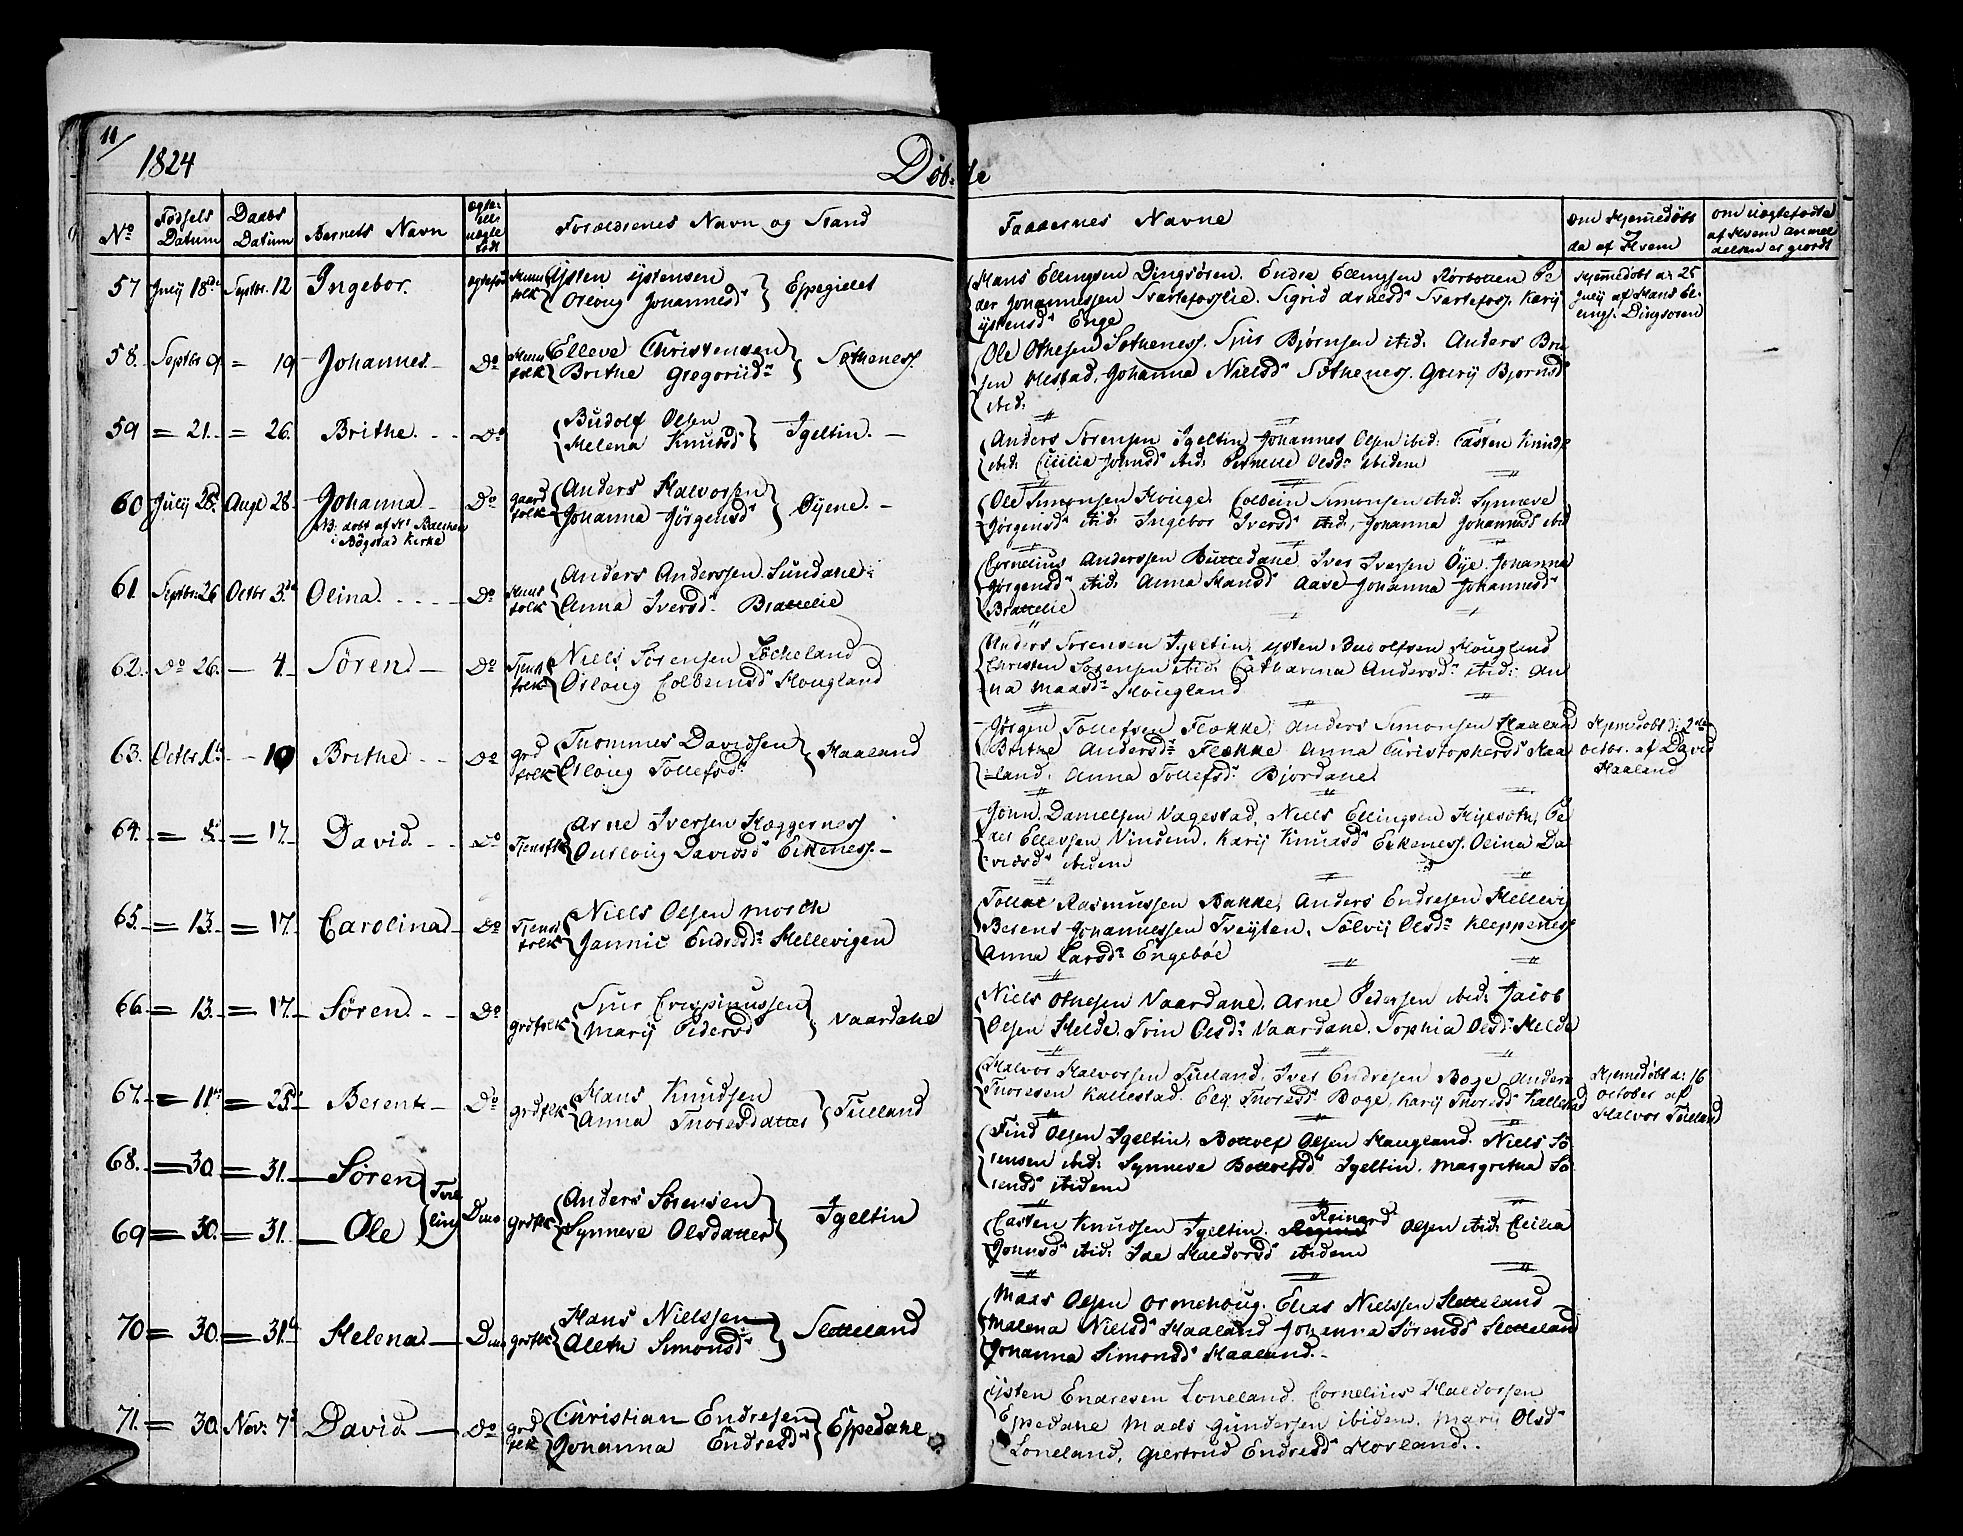 11/
1824
Døb-te
No
Fødsels Datum
Daabs Datum
Barnets Navn
ægte- ell: uægte født
Forældrenes Navn og Stand
Faddernes Navne
om Hjemedøbt da af Hvem
om uægtefødte af Hvem anmeldelsen er giordt
57 July 18de Septbr. 12 Ingebor. ægtefød Huus folk
Østen Østensen
Osloug Johannesdr
Espegielet
Hans Ellingsen Dingsøren. Endre Ellingsen Rørbotten Pe-
der Johannessen Svartefoslie. Sigrid Arnesdr Svartefos, Karij
Østensdr Enge
Hjemedøbt d: 25
July af Hans El-
lings. Dingsøren
58. Septbr 9 = 19 Johannes. Do Huus folk
Elleve Christensen
Brithe Gregoriidr
Sothenes.
Ole Othesen Sothenes. Siur Bjørnsen ibid: Anders
sen Mestad, Johanna Nielsdr Sothenes. Gurij Bjornsdr
ibid:
59 = 21. = 26. Brithe. Do
Budolf Olsen
Helena Knutsdr
Igeltin.
Anders Sørensen Igeltin Johannes Olsen ibid: Casten Knuds
ibid: Cicilia Jonnsdr ibid: Pernelle Olsdr ibidem
60 July 28. Augs 28. Johanna Do gaard folk
NB. døbt af Hr
i Bøgstad Kirke
Anders Halvorsen
Johanna Jørgensdr
Øyene.
Ole Simonsen Houge. Colbein Simonsen ibid: Synneve
Jørgensdr ibid: Ingebor Iversdr ibid, Johanna Johannesdr ibid
61. Septbr. 26 Octbr 3de Olina. Do Huus folk
Anders Anderssen Sundane
Anna Iversdr Brattelie
Cornelius Anderssen Buttedane Iver Iversen Øye. Johanna
Jørgensdr ibid: Anna Hansdr Aase Johanna Johannesdr
Brattelie
62. Do 26. 4. Søren Do Tjenst folk
Niels Sørensen Løcheland
Osloug Colbeinsdr Hougland
Anders Sørensen Igeltin, Østen Budolfsen Hougland
Christen Sørensen ibid: Catharina Andersdr ibid: An
na Maasdr Hougland
63. Octbr. 1te 10 Brithe Do grd folk
Thommes Davidsen
Osloug Tollefsdr
Haaland
Jørgen Tollefsen Flekke, Anders Simonsen Haaland
Brithe Andersdr Flekke Anna Christophersdr Haa
land. Anna Tollefsdr Bjordane.
Hjemedøbt d: 2de
Octbr. af David
Haaland
64. = = 17. David. Do Tjenstflk
Arne Iversen Heggernes
Outloug Davidsdr Eikenes.
Jonn Danielsen Vagestad, Niels Ellingsen Pe
der Ellevsen Vindem. Karij Knudsdr Eikenes. Olina Da
vidsdr ibidem
65. = 13. = 17. Carolina Do Tjenst folk
Niels Olsen Morch
Jannic Endresdr Hellevigen
Tollac Rasmussen Bakke, Anders Endresen Hellevig
Berent Johannessen Tveyten, Sølvij Olsdr Kleppenes
Anna Larsdr Engebøe
66. = 13. = 17. Søren. Do grdfolk
Siur Crispinussen
Marij Pedersdr
Vaardane
Niels Othesen Vaardane. Arne Pedersen ibid: Jacob
Olsen Helde. Trin Olsdr Vaardane. Sophia Olsdr Helde
67. = 11te = 23de Berent Do grdflk
Hans Knudsen
Anna Thoresdatter
Tulland
Halvor Halvorsen Tulland, Iver Endresen Boge Anders
Thoresen Kallestad Elij Thoresdr Boge, Karij Thoresdr Kallestad
Hjemedøbt d: 16
October af
Halvor Tulland
68. = 30. = 31. Søren
69 = 30. = 31. Ole
Tvil ling Dmo Grdflk
Anders Sørensen
Synneve Olsdatter
Igeltin
Find Olsen Igeltin, Bottolf Olsen Haugland. Niels Sø
rensen ibid: Synneve Bottolfsdr Igeltin. Margretha Sø
rensdr ibidem
Casten Knudsen Igeltin. Reinard Olsen ibid: Cicilia
Jonnsdr ibid: Ide Haldorsdr ibidem
70 = 30. = 31te Helena Dmo grdflk
Hans Nielssen
Aleth Simonsdr
Sletteland
Mads Olsen Ormehoug. Elias Nielssen Sletteland
Malena Nielsdr Haaland Johanna Sørensdr Sletteland
Johanna Simonsdr Haaland.
71. = 30. Nov: 7de David. Do grd folk
Christian Endresen
Johanna Endresdr
Espedahl
Østen Endresen Loneland. Cornelius Haldorsen
Espedahl Mads Gundersen ibidem. Marij Olsdr
Loneland, Giertrud Endresdr Horland.